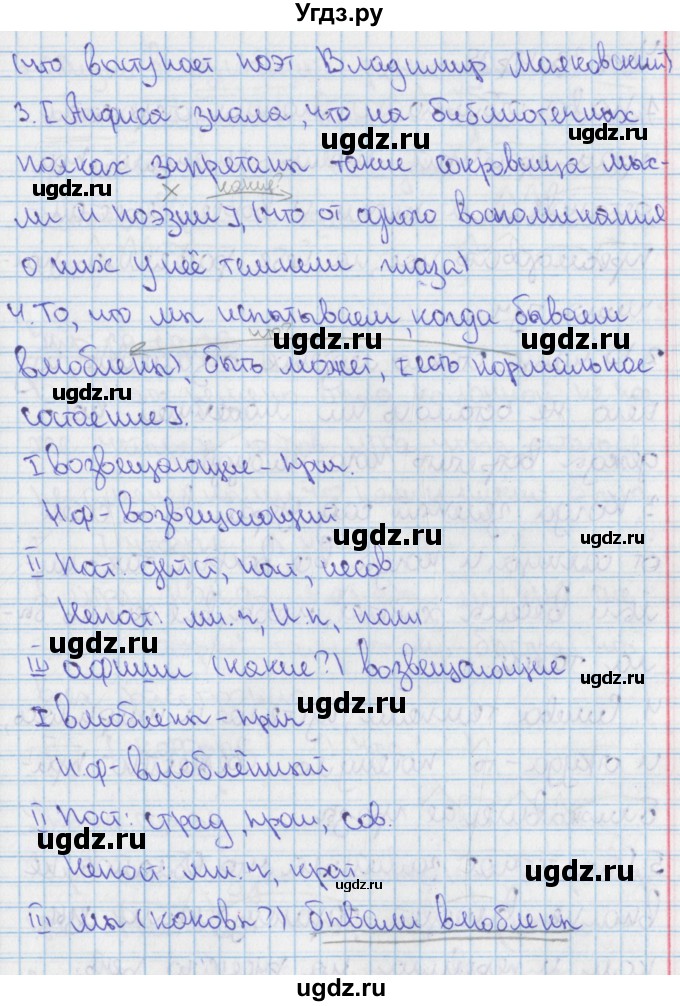 Угдз.ру
(что выступает поэт Владимир Маяковский)
3. [Анфиса знала, что на библиотечных
ugdz.ru ugdz.ru
полках запрятаны такие сокровища мыс-
ugdz.ru × какие? ugdz.ru
ли и поэзии], (что от одного воспоминания
о них у неё темнели глаза)
4. То, что мы испытываем, когда бываем
что? ugdz.ru ugdz.ru
влюблены), быть может, [есть нормальное
ugdz.ru
состоение].
I возвещающие - прич.
ugdz.ru
Н.ф - возвещающий
ugdz.ru ugdz.ru
II Пост: дейст, наст, несов
Непост: мн.ч, И.п, полн
ugdz.ru
III афиши (какие?) возвещающие
ugdz.ru
I влюблены - прич
ugdz.ru
Н.ф - влюблённый
II Пост: страд, прош, сов.
ugdz.ru ugdz.ru
Непост: мн.ч, крат.
ugdz.ru ugdz.ru
III мы (каковы?) бывали влюблены
ugdz.ru ugdz.ru